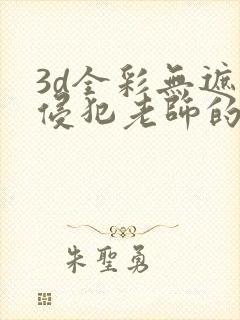 3d全彩無遮
侵犯老師的
朱聖勇